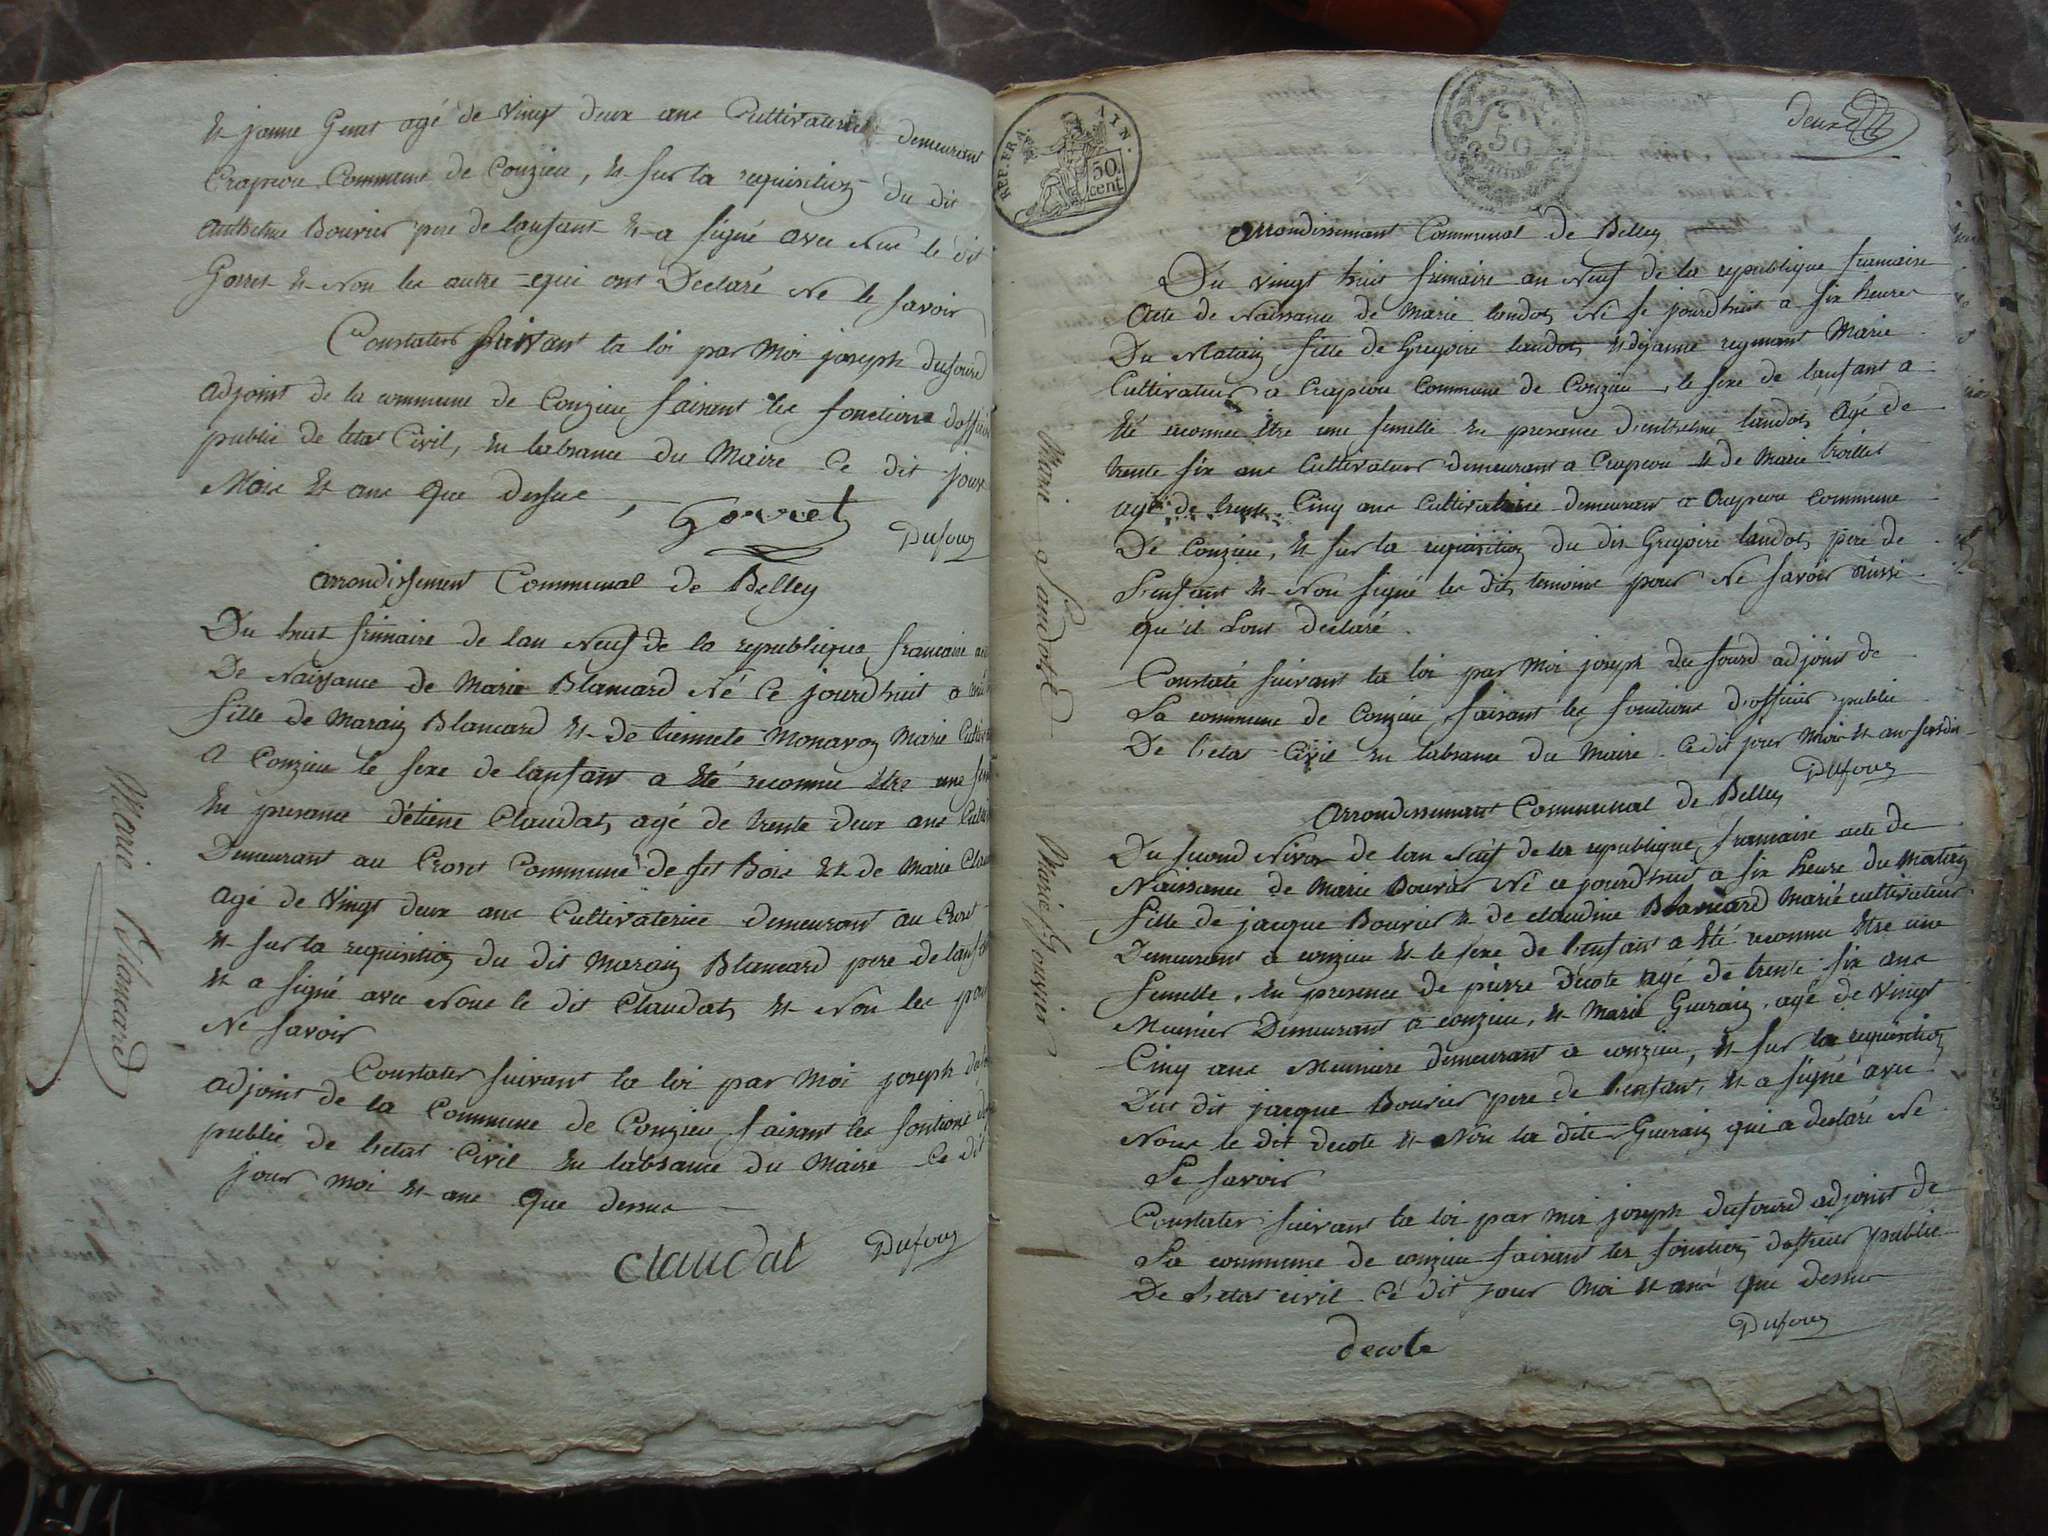 Et janne Genet agé de vingt deux ans Cultivaterice demeurant
Crapeou Commune de Conzieu, Et sur la requisition du dit
anthelme Bouvier pere de lanfant Et a signé avec Nous le dit
Gorret Et Non les autre qui ont Declaré Ne le savoir
Constater suivant la loi par moi joseph dufourd
adjoint de la commune de Conzieu faisant les fonctions doffici
public de letat Civil, En labsance du Maire Ce dit jour
Mois Et ans que dessus
Gorret
Dufour
Marie Blancard
arrondissement Communal de Belley
Du huit frimaire de lan Neuf de la republique francaise
De Naissance de Marie Blancard Né Ce jourdhuit a
fille de Marain Blancard Et de tiennete Monavon Marié
a Conzieu le sexe de lanfant a Eté reconnu Etre une
En presance d'étiene Claudat, agé de trente deux ans
Demeurant au Croset Commune de Bois Et de Marie
agé de vingt deux ans Cultivaterice demeurant au Croset
Et sur la requisition du dit Marain Blancard pere de
Et a signé avec Nous le dit Claudat, Et Non les pour
Ne savoir
Constater suivant la loi par moi joseph
adjoint de la Commune de Conzieu faisant les fontions
public de letat Civil En labsance du Maire Ce dit
jour moi Et ans que dessus
Claudat
Dufour
REP. FRA. AIN.
50 cent
50
Centime
deux
Marie Landot
arrondissemant Communal de Belley
Du vingt huit frimaire an Neuf de la republique francaise
Acte de Naissance de Marie landot, Né se jourdhuit a six heures
Du Matain fille de Gregoire landot, et de janne Marie
Cultivateur a Crapeou Commune de Conzieu, le sexe de lanfant a
Eté reconnu Etre une femelle En presance d'anthelme landot, Agé de
trente six ans Cultivateur demeurant a Crapeou Et de Marie
agé de trente Cinq ans Cultivaterice demeurant a Crapeou commune
De Conzieu, Et sur la requisition du dit Gregoire landot, pere de
L'enfant Et Non signé les dits temoins pour Ne savoir aussi
qu'il Lont declaré.
Constaté suivant la loi par moi joseph du fourd adjoint de
La commune de Conzieu, faisant les fonctions d'officier public
De l'etat Civil En labsance du Maire Ce dit jour Mois Et an susdit
Dufour
Marie Bouvier
arrondissemant Communal de Belley
Du second Nivose de lan Neuf de la republique francaise acte de
Naissance de Marie Bouvier Né ce jourdhuit a six heure du Matin
fille de jacque Bouvier Et de claudine Blancard Marié cultivateur
Demeurant a conzieu Et le sexe de l'enfant a Eté reconnu Etre une
femelle, En presence de pierre Decote agé de trente six ans
Meunier Demeurant a conzieu, Et Marie Guerain agé de vingt
Cinq ans Meuniere demeurant a conzieu, Et sur la requisition
Dut dit jacque Bouvier pere de l'enfant, Et a signé avec
Nous le dit Decote Et Non la dite Guerain qui a declaré Ne
Le savoir
Constater suivant la loi par moi joseph dufourd adjoint de
La commune de conzieu faisant les fonction doficier public
De l'etat civil Cé dit jour moi Et ans que dessus
Dufour
decote